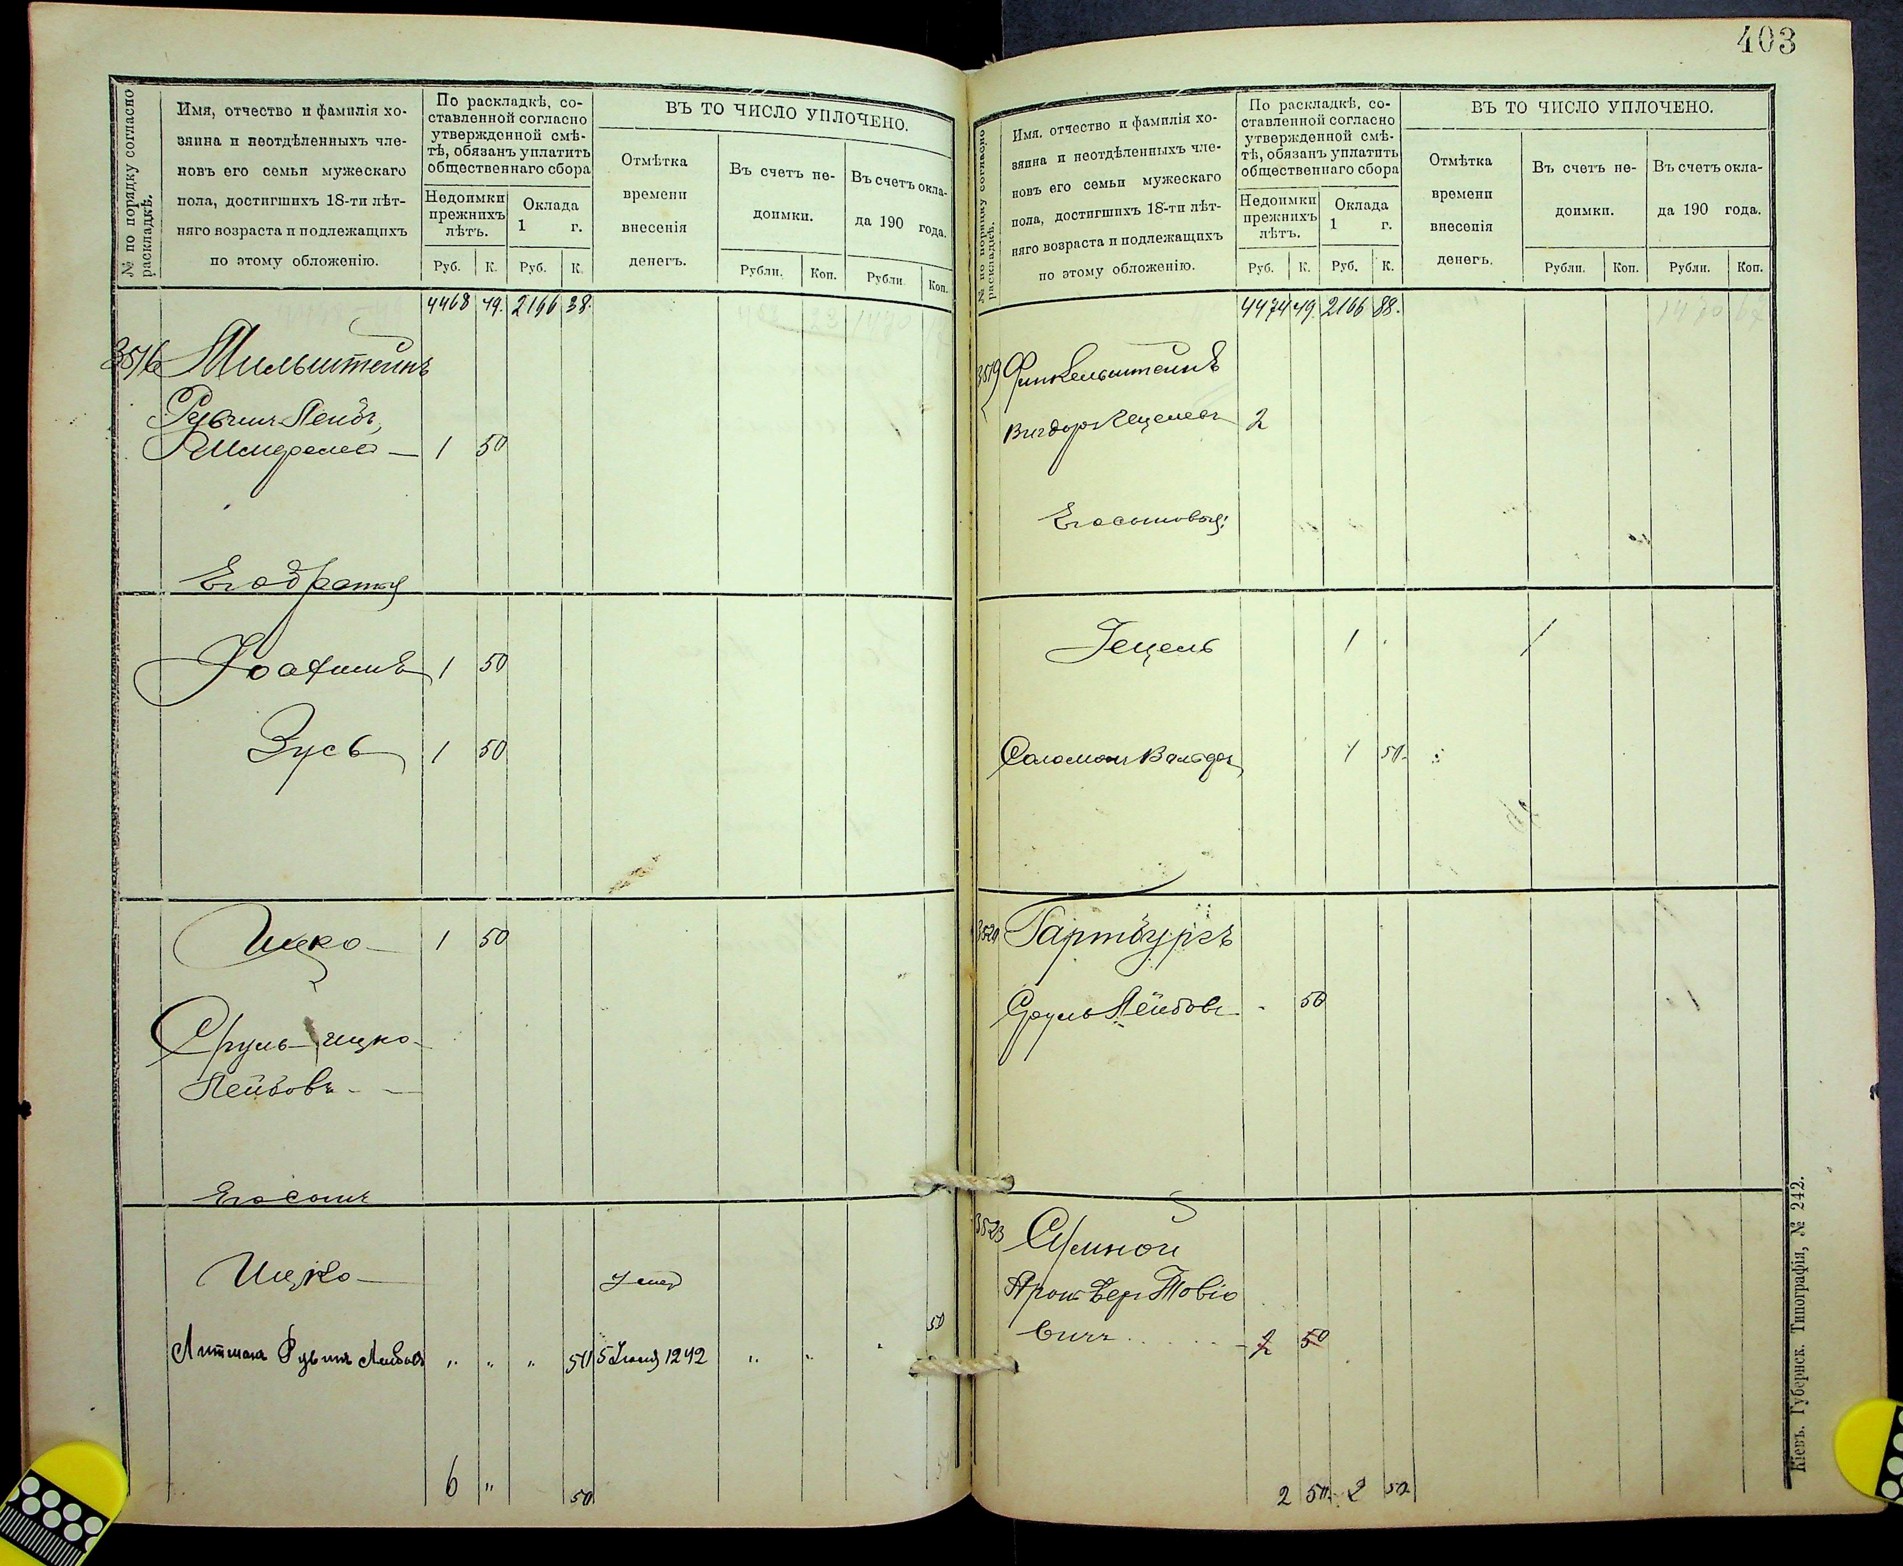 403
№ по порядку согласно раскладкѣ.
Имя, отчество и фамилія хо-
зяина и неотдѣленныхъ чле-
новъ его семьи мужескаго
пола, достигшихъ 18-ти лѣт-
няго возраста и подлежащихъ
по этому обложенію.
По раскладкѣ, со-
ставленной согласно
утвержденной смѣ-
тѣ, обязанъ уплатить
общественнаго сбора
Недоимки
прежнихъ
лѣтъ.
Оклада
1 г.
Руб. К. Руб. К.
ВЪ ТО ЧИСЛО УПЛОЧЕНО.
Отмѣтка
времени
внесенія
денегъ.
Въ счетъ не-
доимки.
Въ счетъ окла-
да 190 года.
Рубли. Коп. Рубли Коп.
4468 49. 2166 38.
3516 Мильштейнъ
Рувинъ Лейбъ,
Шмерелев — 1 50
Его братья
Іоахимъ 1 50
Зусь 1 50
Ицко — 1 50
Сруль Ицко-
Лейбовъ - —
Его сынъ
Ицко — умер
Литманъ Рувинъ Лейбовъ " " " 50 5 Іюня 1242 " " " 50
6 " 50
№ по порядку согласно раскладкѣ.
Имя, отчество и фамилія хо-
зяина и неотдѣленныхъ чле-
новъ его семьи мужескаго
пола, достигшихъ 18-ти лѣт-
няго возраста и подлежащихъ
по этому обложенію.
По раскладкѣ, со-
ставленной согласно
утвержденной смѣ-
тѣ, обязанъ уплатить
общественнаго сбора
Недоимки
прежнихъ
лѣтъ.
Оклада
1 г.
Руб. К. Руб. К.
ВЪ ТО ЧИСЛО УПЛОЧЕНО.
Отмѣтка
времени
внесенія
денегъ.
Въ счетъ не-
доимки.
Въ счетъ окла-
да 190 года.
Рубли. Коп. Рубли. Коп.
4474 49. 2166 88.
3519 Финкельштейнъ
Вигдоръ Гецелевъ 2
Его сыновья:
Гецель 1 .
Соломонъ 1 50.
3520 Гартбургъ
Сруль Лейбовъ - 50
3523
Аронъ Беръ Товіо
вичъ . . . . - 2 50
2 50. 2 50
Кіевъ. Губернск. Типографія, № 242.